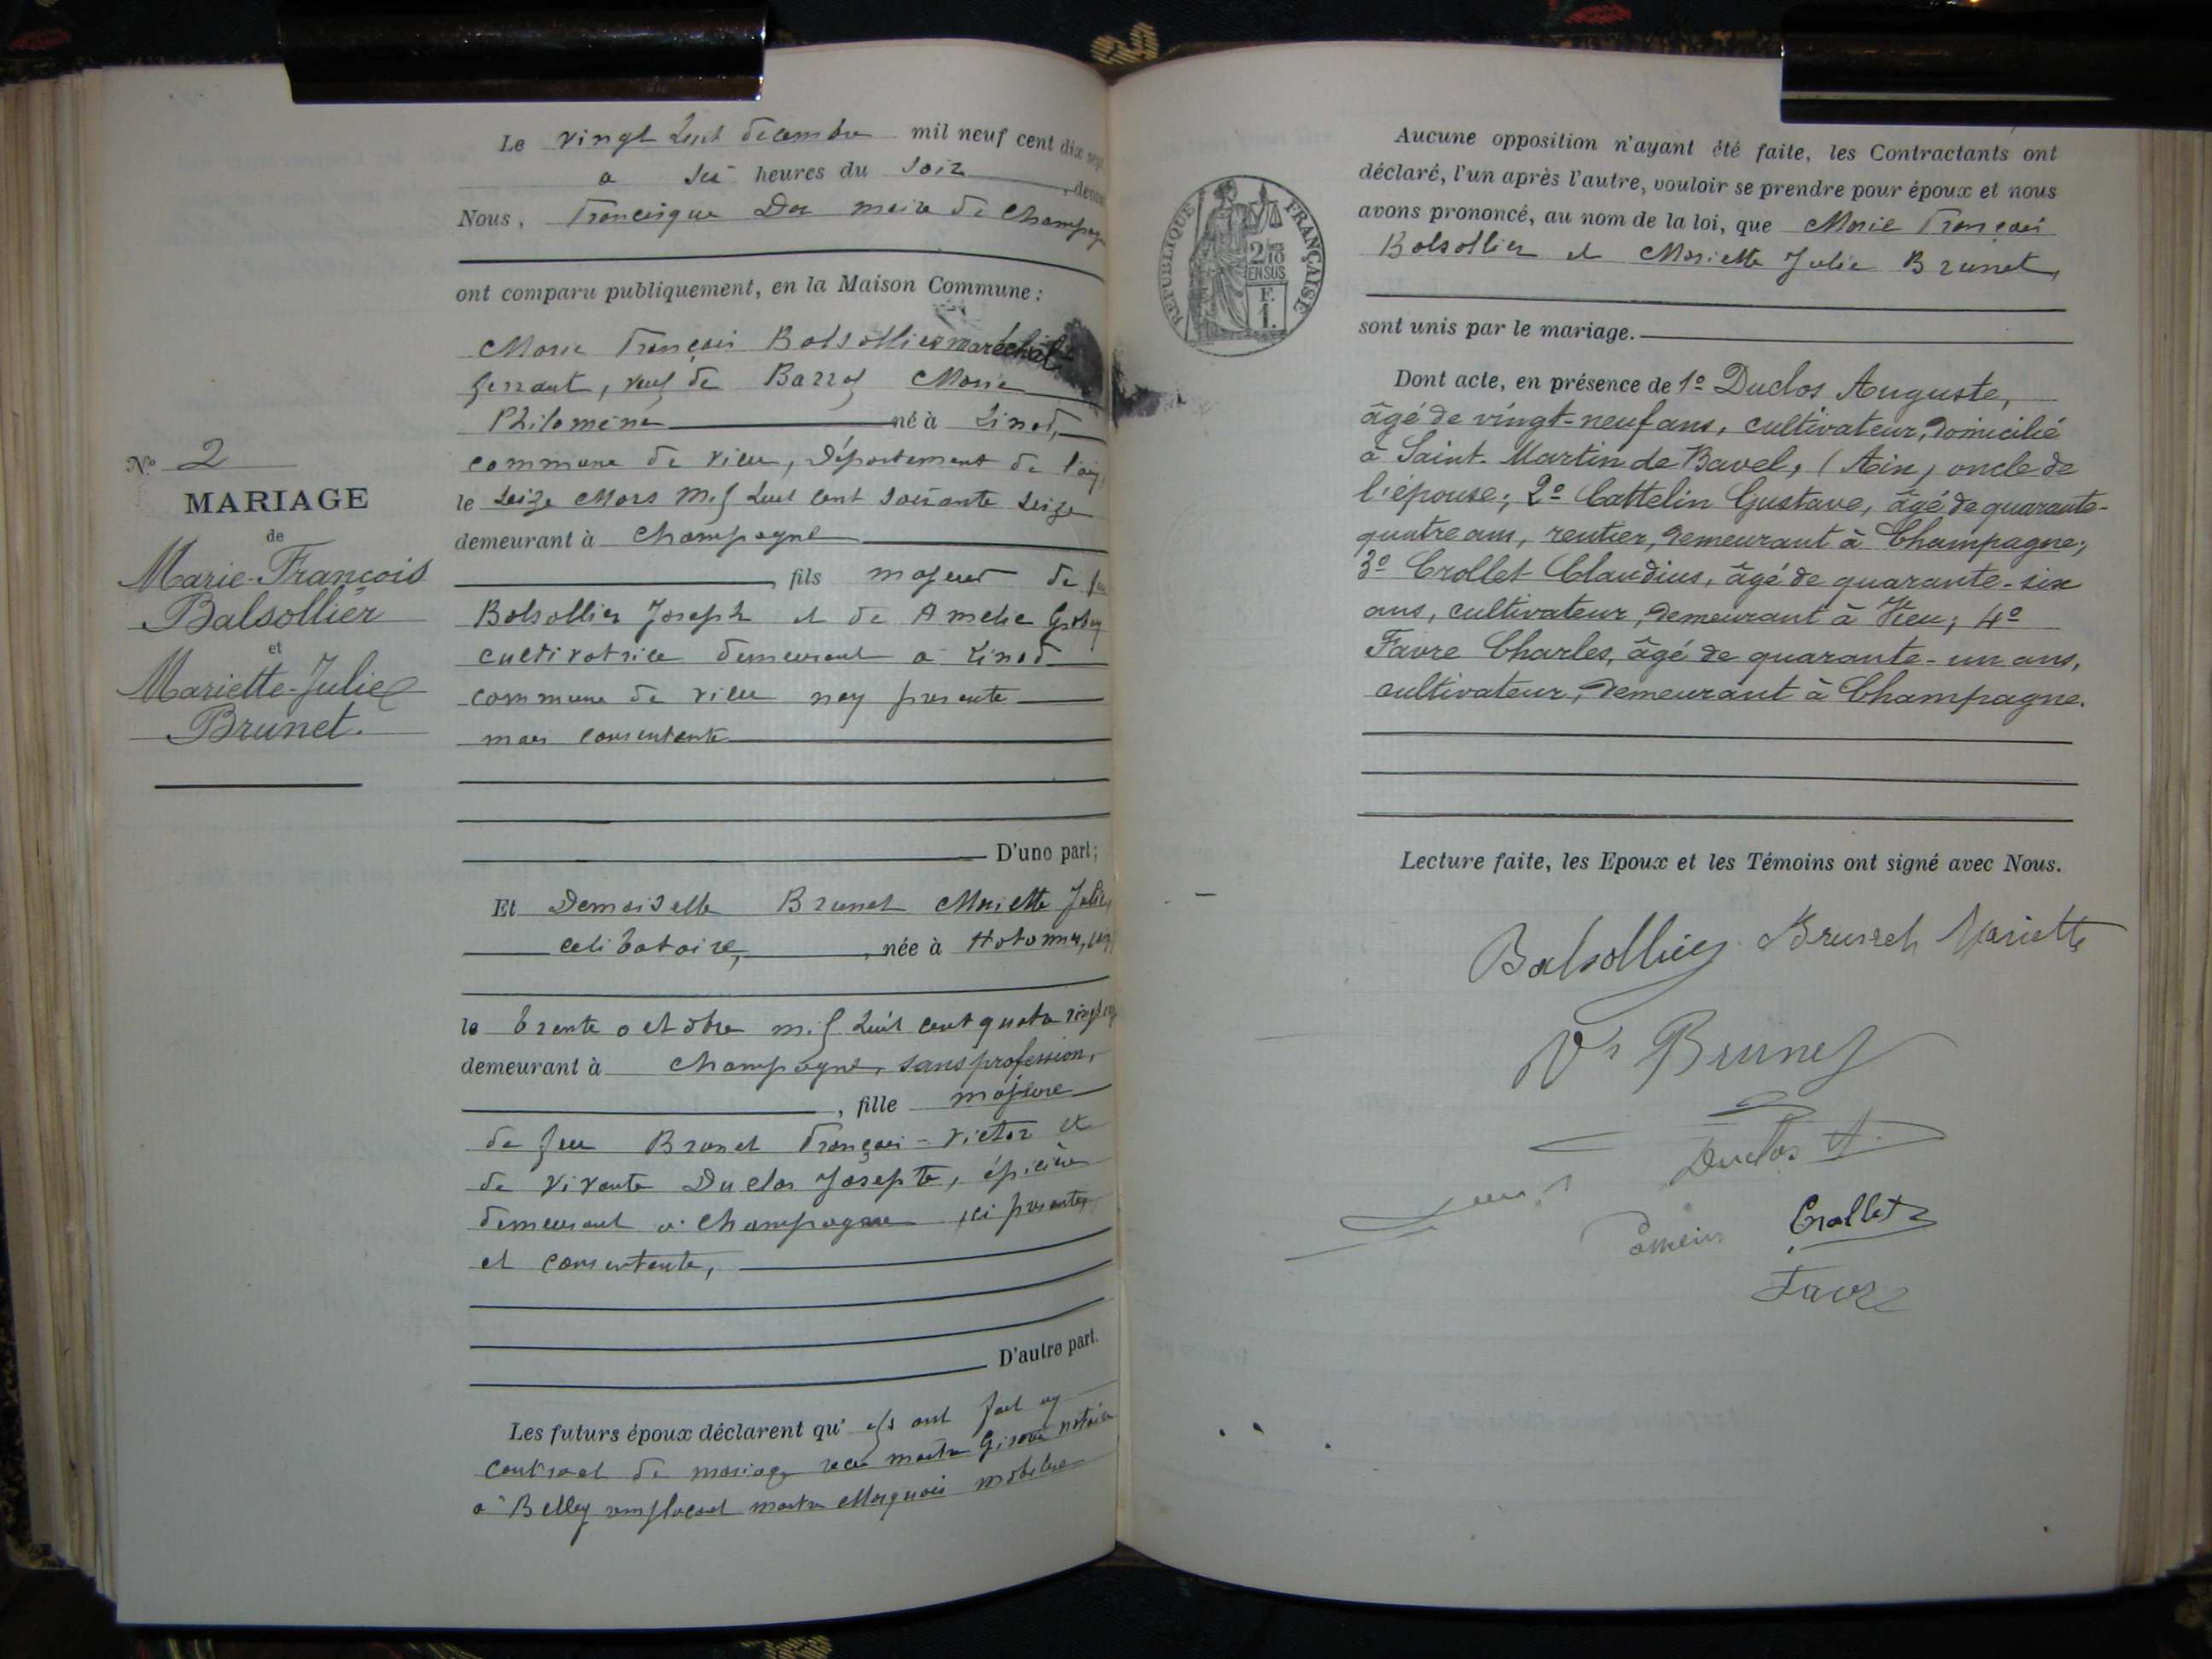 Le vingt huit décembre mil neuf cent dix sept
a six heures du soir, devant
Nous, Francisque Dor maire de Champagne
ont comparu publiquement, en la Maison Commune :
Marie François Balsollier maréchal
ferrant, veuf de Marie
Philomène né à Linod,
commune de Vieu, Département de l'ain,
le seize Mars mil huit cent soixante seize
demeurant à Champagne
fils majeur de feu
Balsollier Joseph et de Amelie
cultivatrice demeurant à Linod
commune de Vieu non présente
mais consentante
D'une part;
Et Demoiselle Brunet Mariette Julie,
celibataire, née à Hotonnes,
le trente octobre mil huit cent quatre vingt
demeurant à Champagne, sans profession,
, fille majeure
de feu Brunet François-Victor et
de vivante Duclos Josepte, épicière
demeurant à Champagne ici présente
et consentante,
D'autre part.
Les futurs époux déclarent qu'ils ont fait un
contract de mariage reçu maitre notaire
à Belley remplaçant maitre Marquois mobilisé
N° 2
MARIAGE
de
Marie-François
Balsollier
et
Mariette-Julie
Brunet.
RÉPUBLIQUE FRANÇAISE
2/10
EN SUS
F.
1.
Aucune opposition n'ayant été faite, les Contractants ont
déclaré, l'un après l'autre, vouloir se prendre pour époux et nous
avons prononcé, au nom de la loi, que Marie François
Balsollier et Mariette Julie Brunet,
sont unis par le mariage.
Dont acte, en présence de 1º Duclos Auguste,
âgé de vingt-neuf ans, cultivateur, domicilié
à Saint-Martin de Bavel, (Ain) oncle de
l'épouse; 2º Cattelin Gustave, âgé de quarante-
quatre ans, rentier, demeurant à Champagne;
3º Crollet Claudius, âgé de quarante-six
ans, cultivateur, demeurant à Vieu; 4º
Favre Charles, âgé de quarante-un ans,
cultivateur, demeurant à Champagne.
Lecture faite, les Epoux et les Témoins ont signé avec Nous.
Balsollier Brunet Mariette
Vve Brunet
Duclos A.
Crollet
Favre